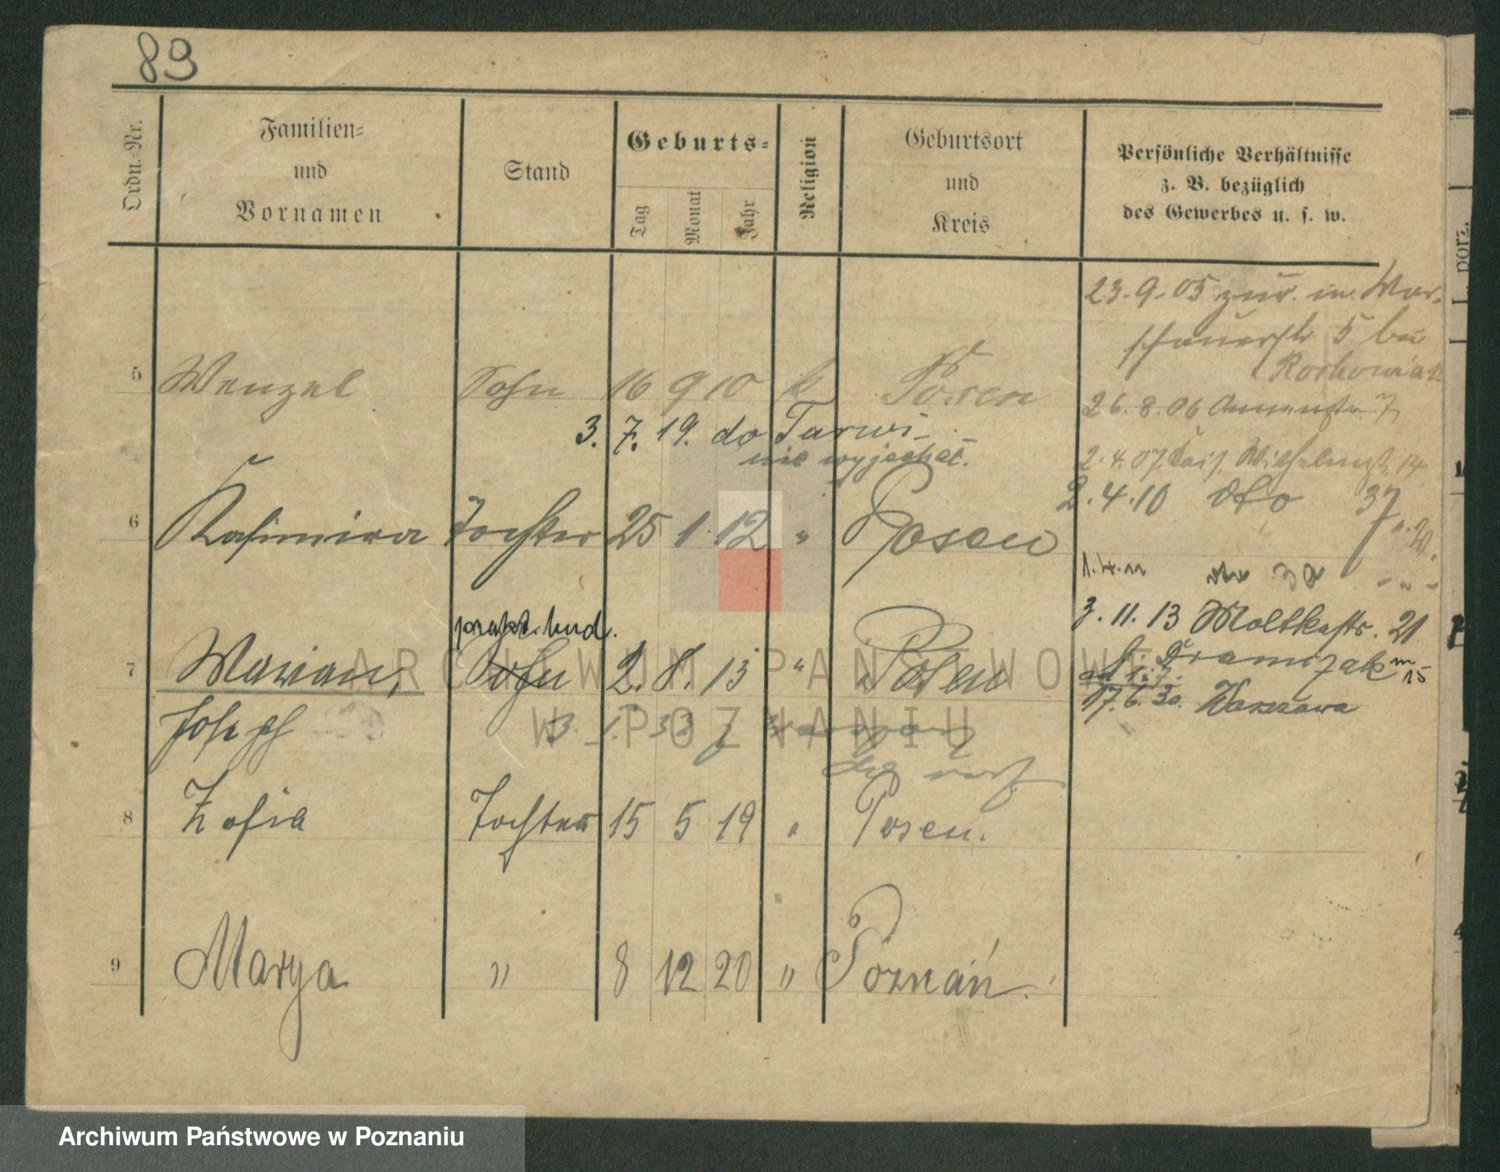 89
Ordn.-Nr.
Familien-
und
Vornamen
Stand
Geburts-
Tag
Monat
Jahr
Religion
Geburtsort
und
Kreis
Persönliche Verhältnisse
z. B. bezüglich
des Gewerbes u. s. w.
23.9.05 zur. in War-
schauerstr 5 bei
26.8.06 7
5 Wenzel Sohn 16 9 10 k Posen
3. 7. 19. do Tarwi-
nie wyjechał.
2.4.07 Kais. Wilhelmstr. 14
2.4.10 dto 37
6 Kasimira Tochter 25 1. 12 " Posen
1.4.11
3.11.13 Moltkestr. 21
7 Marian, Sohn 2. 8. 13 " Posen
Joseph
17.6.30. Warszawa
8 Zofia Tochter 15 5 19 " Posen.
9 Marya " 8 12 20 " Poznań.
ARCHIWUM PAŃSTWOWE
W POZNANIU
Archiwum Państwowe w Poznaniu